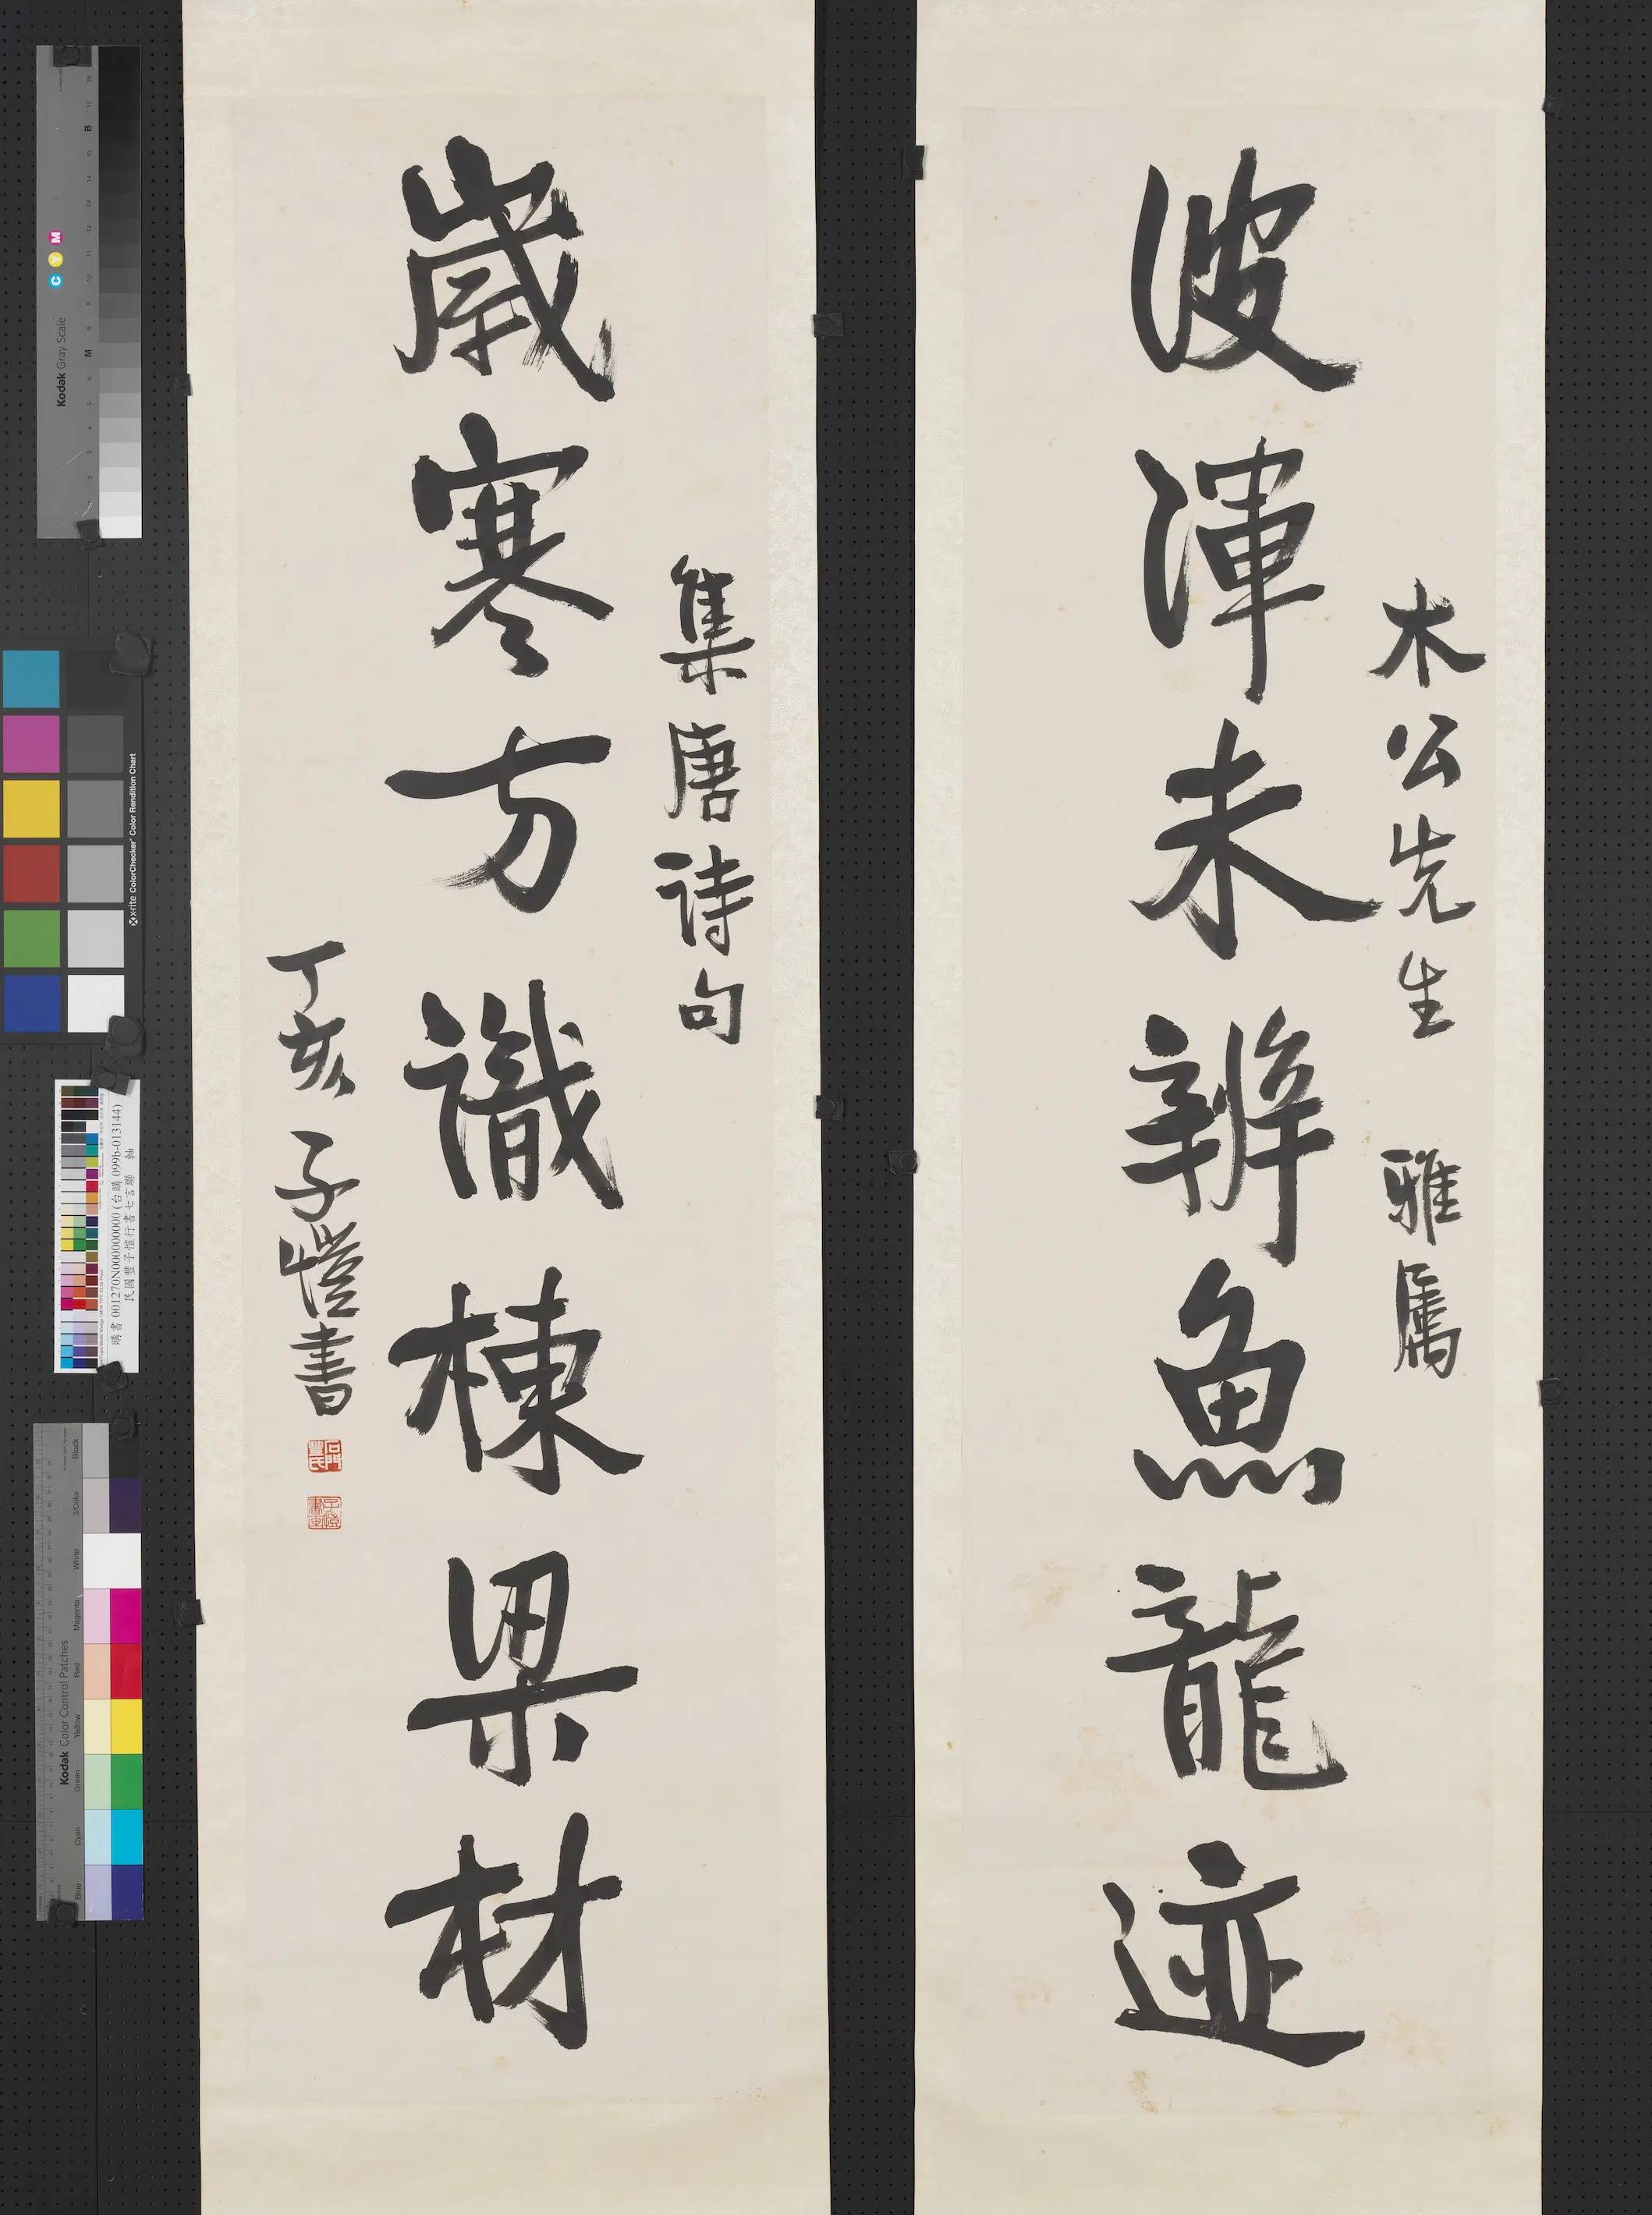 木公先生 雅屬
波渾未辨魚龍迹
集唐詩句
歲寒方識棟梁材
丁亥 子愷書
石門豐氏
子愷書畫
購書 001270N000000000 (台購 099b-013144)
民國豐子愷行書七言聯 軸
Kodak Gray Scale
C Y M
x-rite ColorChecker Color Rendition Chart
Kodak Color Control Patches
Blue Cyan Green Yellow Red Magenta White 3/Color Black